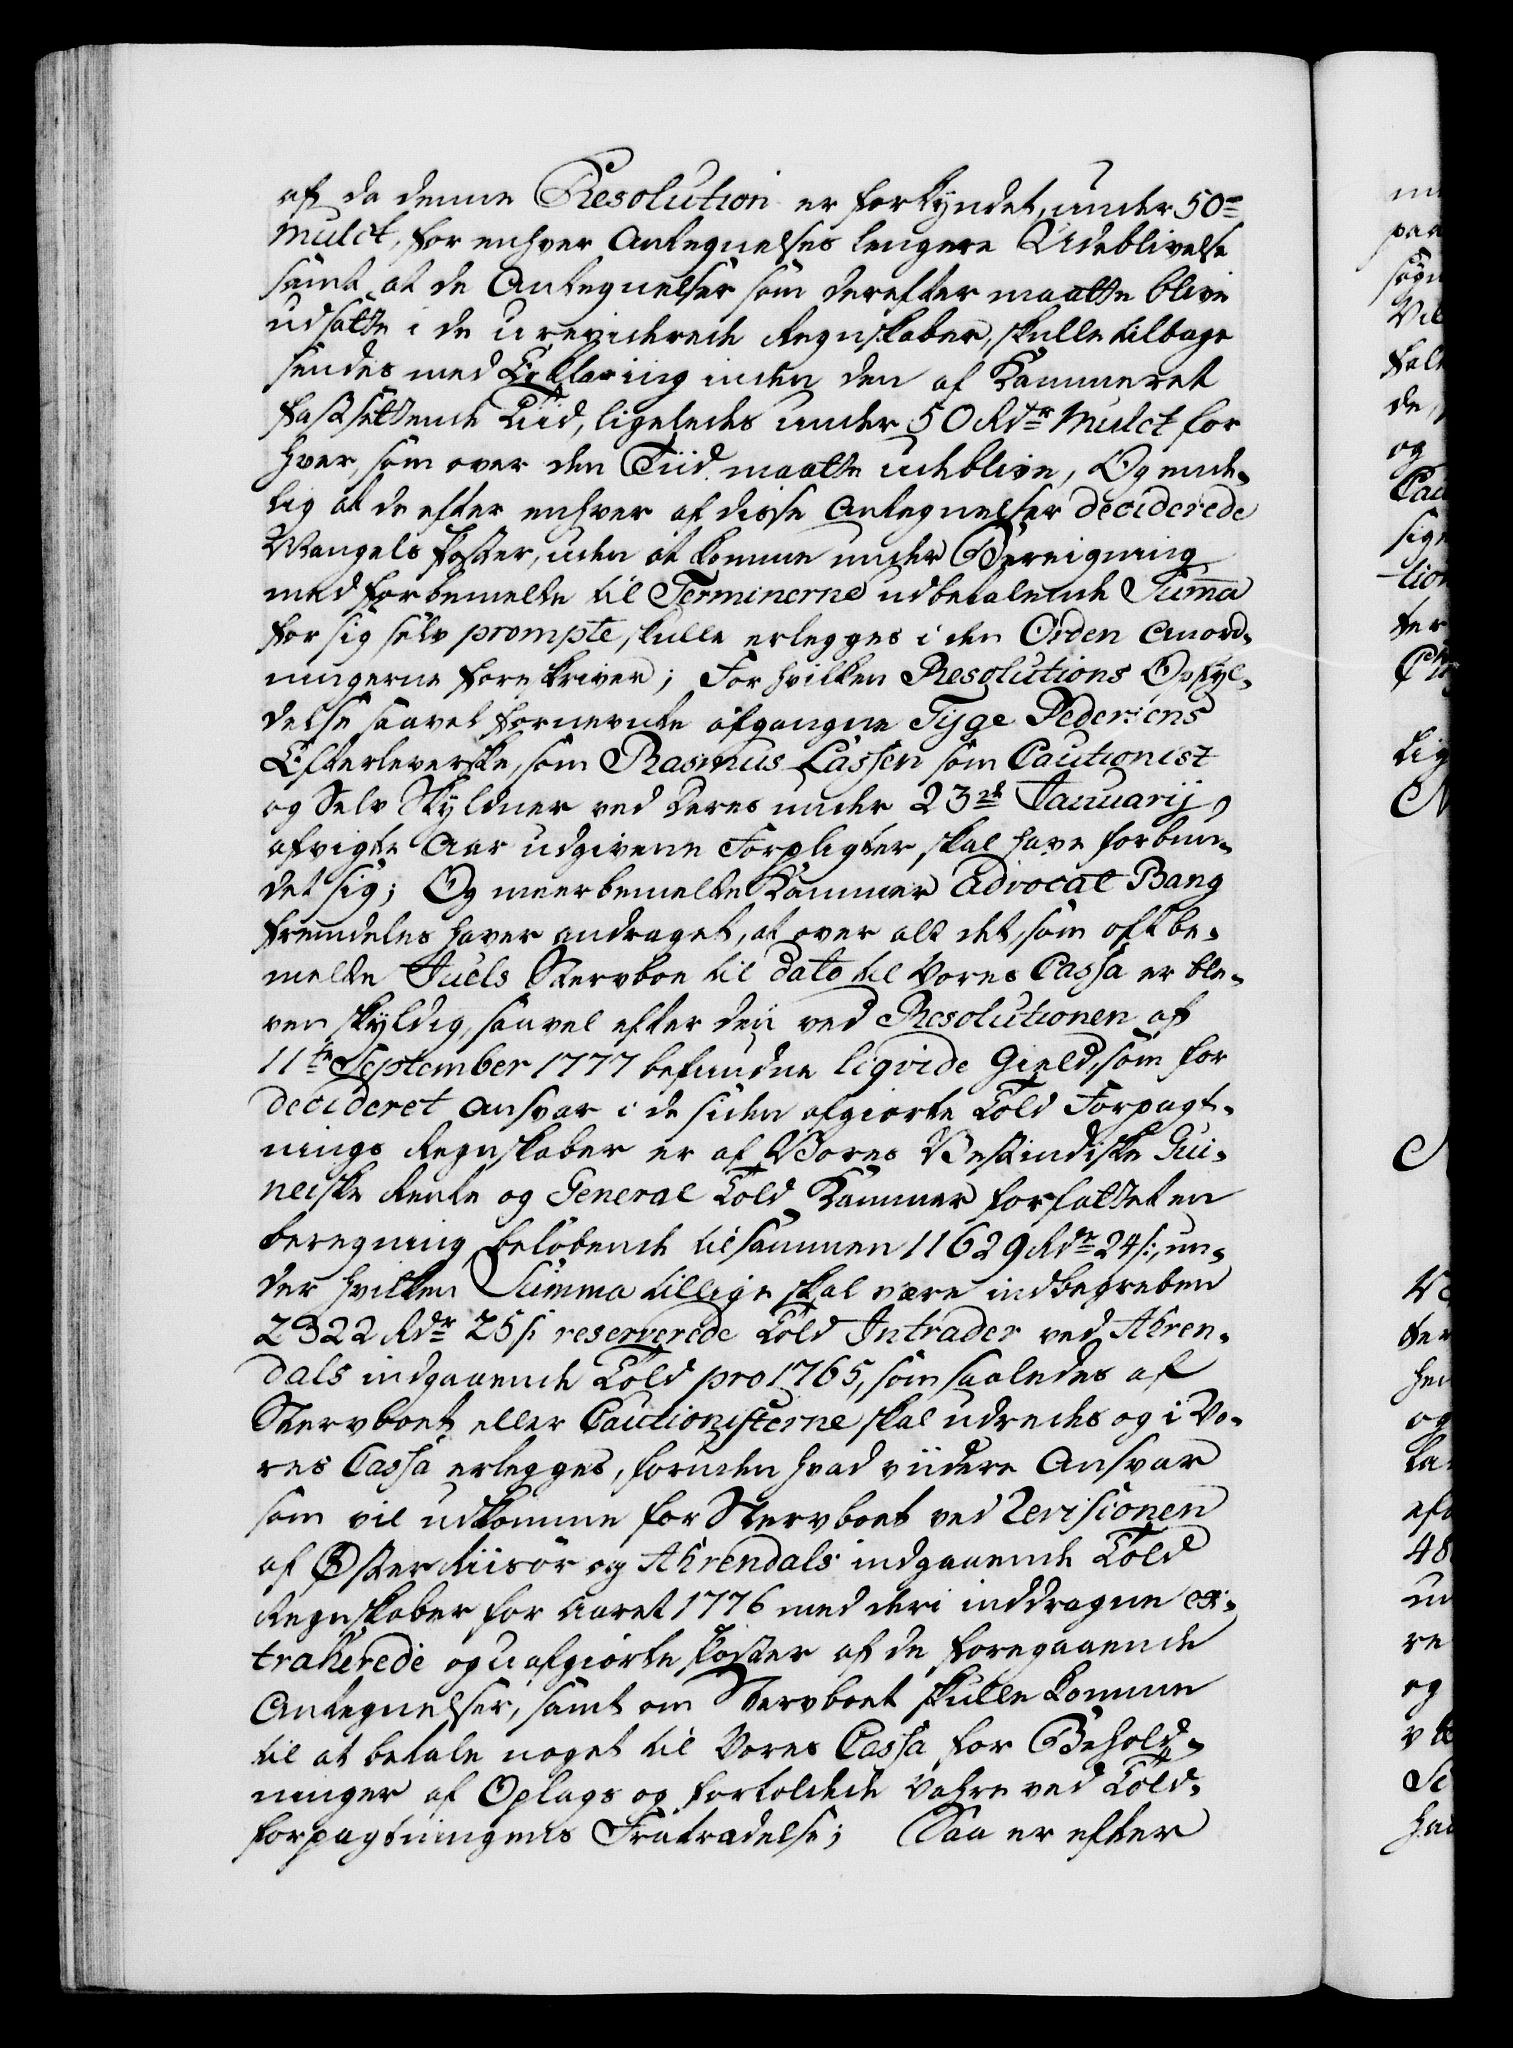 af da denne Resolution er forkyndet, under 50
Mulct, for enhver Antegnelses lengere Udeblivelse
samt at de Antegnelser som derefter maatte blive
udsatte i de ureviderede Regnskaber, skulle tilbage
sendes med Erklaring inden den af Kammeret
fastsettende Tiid, ligeledes under 50 Rdr Mulct for
hver, som over den Tiid maatte udeblive, Og ende-
lig at de efter enhver af disse Antegnelser deciderede
Mangels Poster, uden at komme under Bereigning
med forbemelte til Terminerne udbetalende Suma
for sig selv prompte, skulle erlegges i den Orden Anord-
ningerne foreskriver; For hvilken Resolutions Opfyl-
delse saavel fornevnte afgangne Tyge Pedersens
Efterleverske, som Rasmus Lassen som Cautionist
og Selv Skyldner ved deres under 23de Januarij
afvigte Aar udgivene Forpligter, skal have forbun-
det sig; Og meerbemelte Kammer Advocat Bang
fremdeles haver andraget, at over alt det, som oftbe-
melte Juels Stervboe til dato til Vores Cassa er ble-
ven skyldig, saavel efter den ved Resolutionen af
11te September 1777 befundne liqvide Gield, som for
decideret Ansvar i de siden afgiorte Told Forpagt-
nings Regnskaber er af Vores Vestindiske Gui-
neiske Rente og General Told Kammer forfattet en
beregning, beløbende tilsammen 11629 Rdr 24 s:, un-
der hvilken Summa tillige skal være indbegreben
2322 Rdr 25 s: reserverede Told Intrader ved Ahren-
dals indgaaende Told pro 1765, som saaledes af
Stervboet eller Cautionisterne skal udredes og i Vo-
res Cassa erlegges, foruden hvad viidere Ansvar
som vil udkomme for Stervboet ved Revisionen
af Øster Riisør og Ahrendals indgaaende Told
Regnskaber for Aaret 1776 med deri inddragne ex-
traherede og uafgiorte Poster af de foregaaende
Antegnelser, samt om Stervboet skulle komme
til at betale noget til Vores Cassa for Behold-
ninger af Oplags og fortoldede Vahre ved Told-
forpagtningens Fratradelse; Saa er efter